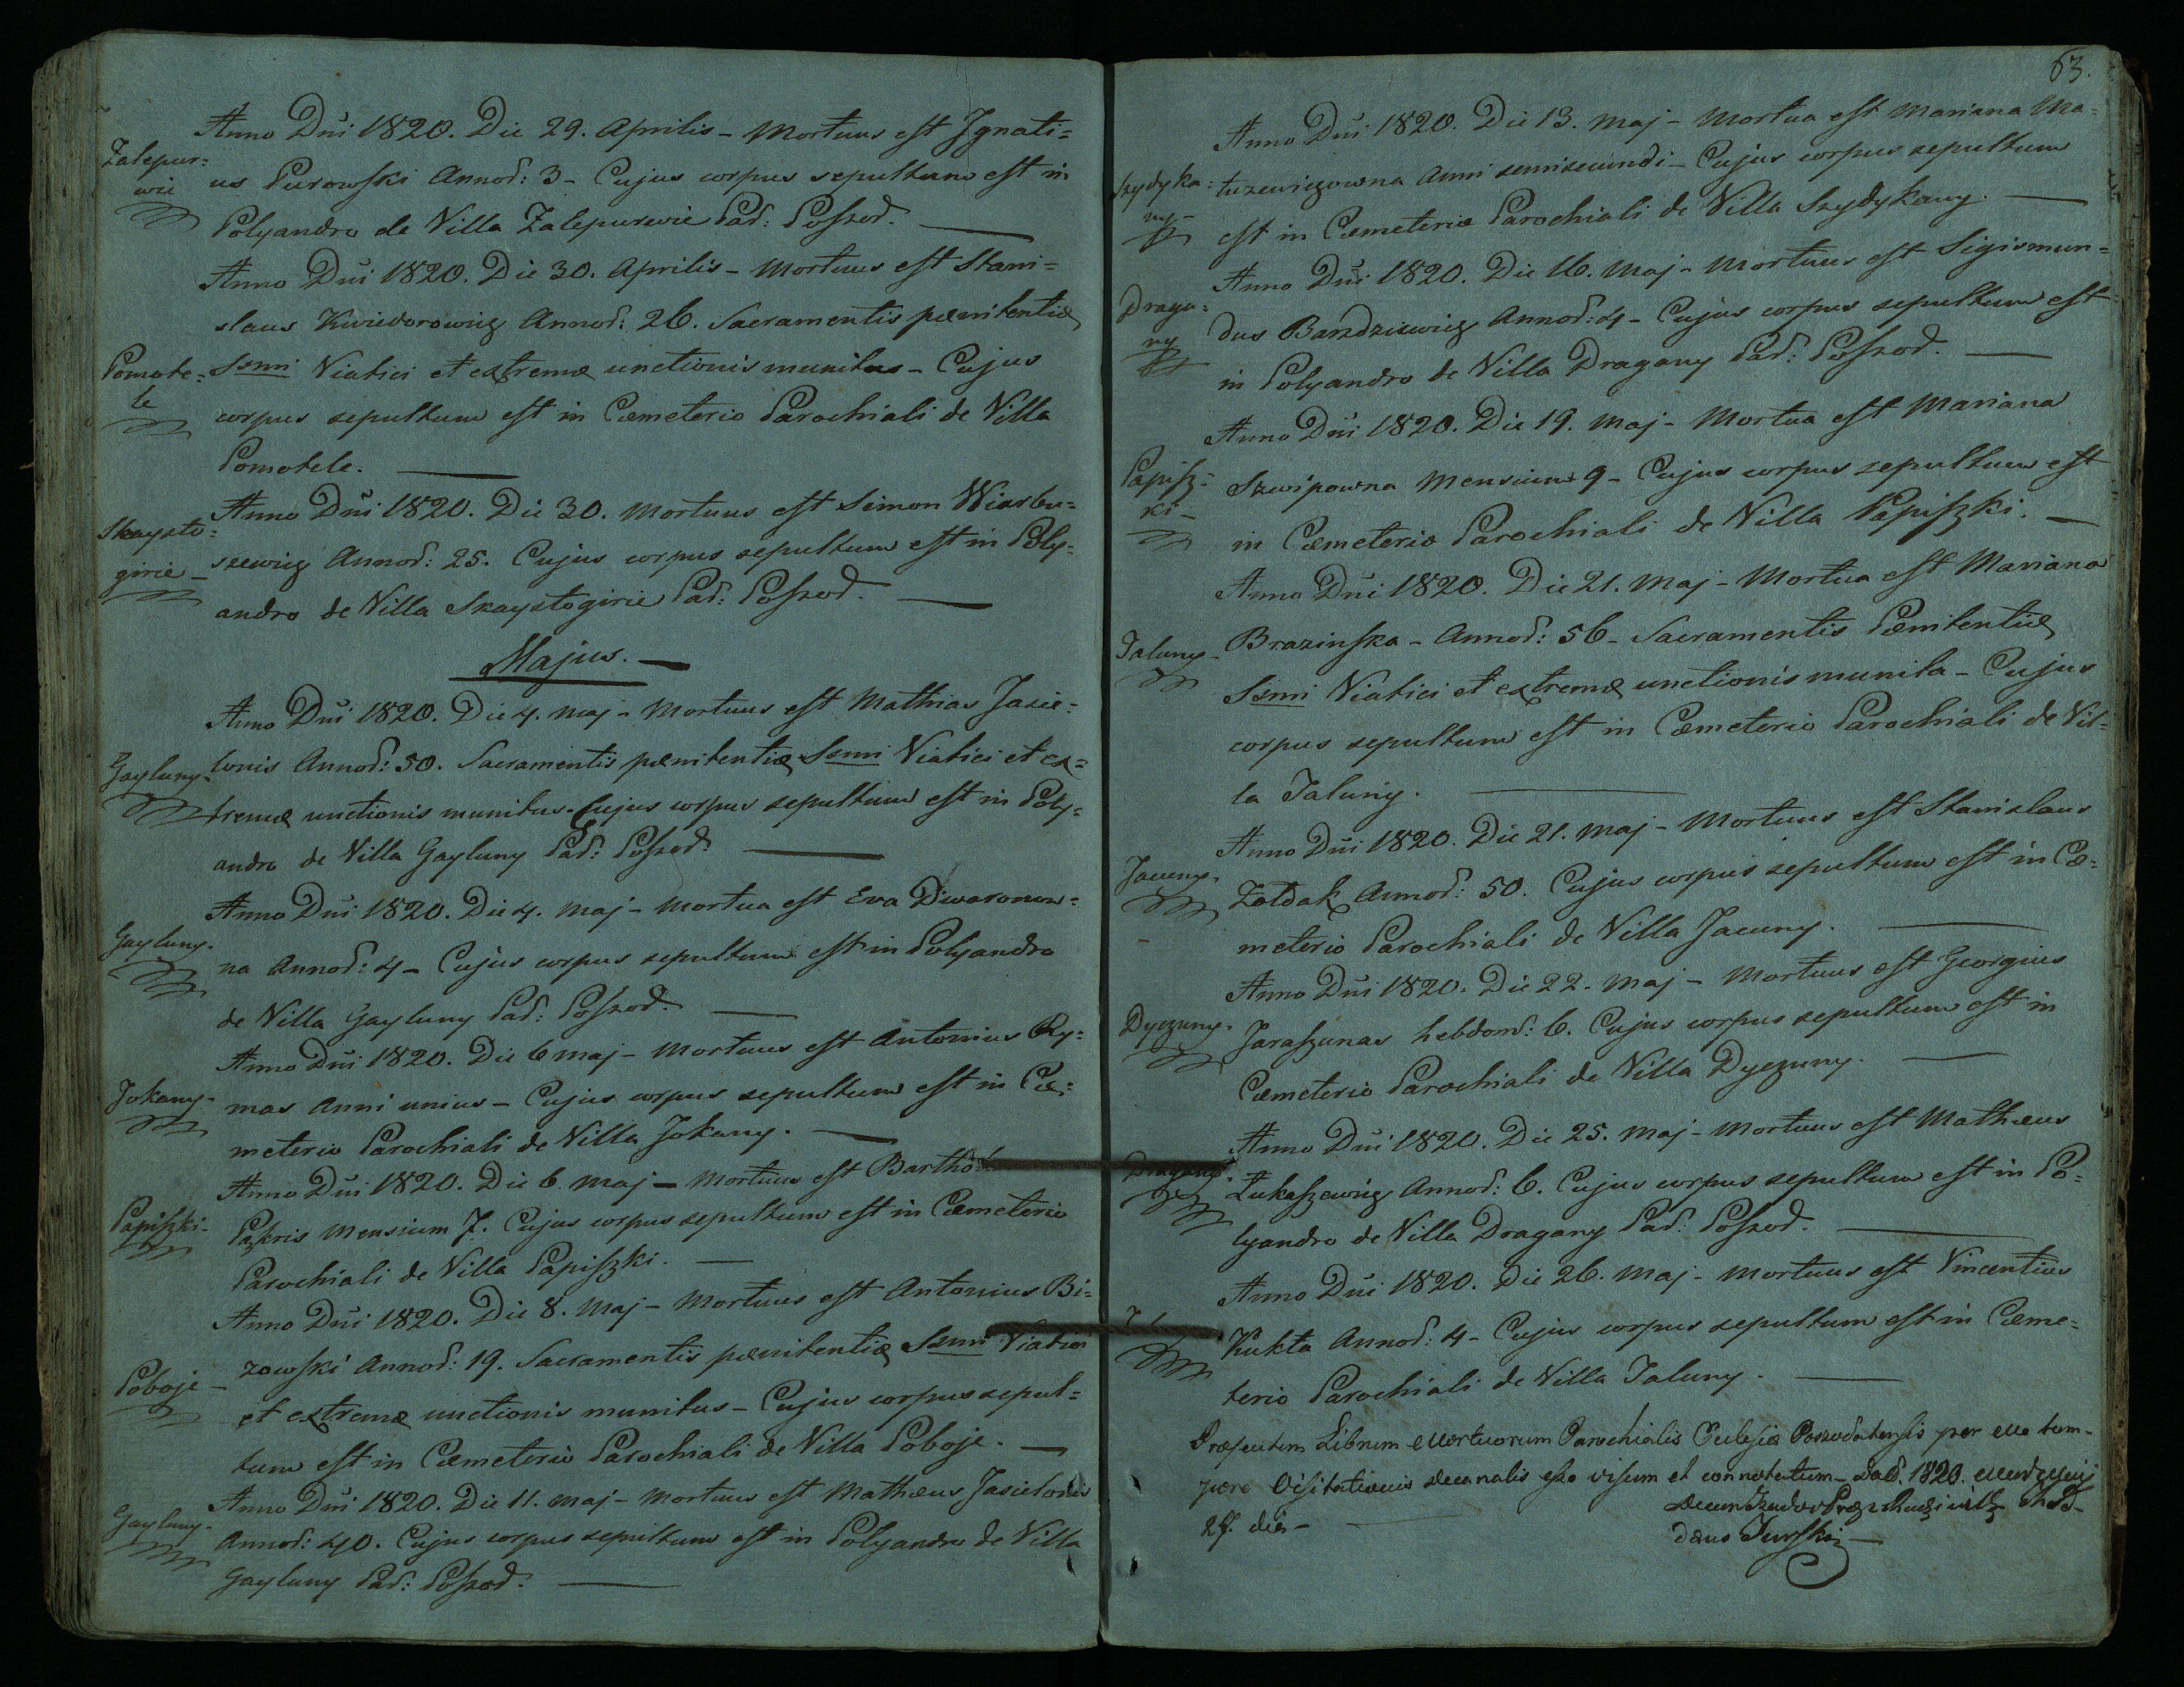 Anno Dñi 1820. Die 29. Aprilis – Mortuus est Ignati=
Zalepur=
wie
us Purowski Annor: 3 – Cujus corpus sepultum est in
Polyandro de Villa Zalepurwie Par: Poszod.
Anno Dñi 1820. Die 30. Aprilis – Mortuus est Stani=
slaus Kwiedorowicz Annor: 26. Sacramentis pœnitentiæ
Pomote=
le
Ssmi Viatici et extremæ unctionis munitus – Cujus
corpus sepultum est in Cœmeterio Parochiali de Villa
Pomotele.
Anno Dñi 1820. Die 30. Mortuus est Simon Wiarbu=
Skaysto=
girie –
szewicz Annor: 25. Cujus corpus sepultum est in Poly=
andro de Villa Skaystogirie Par: Poszod.
Majus.
Anno Dñi 1820. Die 4. Maj – Mortuus est Mathias Jasie=
Gayluny –
lonis Annor: 50. Sacramentis pœnitentiæ Ssmi Viatici et ex=
tremæ unctionis munitus – Cujus corpus sepultum est in Poly=
andro de Villa Gayluny Par: Poszod.
Anno Dñi 1820. Die 4. Maj – Mortua est Eva Diwaronow=
Gayluny.
na Annor: 4 – Cujus corpus sepultum est in Polyandro
de Villa Gayluny Par: Poszod.
Anno Dñi 1820. Die 6 Maj – Mortuus est Antonius Ry=
Jokany –
mas Anni unius – Cujus corpus sepultum est in Cœ=
meterio Parochiali de Villa Jokany.
Anno Dñi 1820. Die 6 Maj – Mortuus est Barthol:
Papiszki –
Paskris Mensium 7. Cujus corpus sepultum est in Cœmeterio
Parochiali de Villa Papiszki.
Anno Dñi 1820. Die 8. Maj – Mortuus est Antonius Bi=
Poboje –
zowski Annor: 19. Sacramentis pœnitentiæ Ssmi Viatici
et extremæ unctionis munitus – Cujus corpus sepul=
tum est in Cœmeterio Parochiali de Villa Poboje.
Anno Dñi 1820. Die 11. Maj – Mortuus est Mathæus Jasielonis
Gayluny.
Annor: 40. Cujus corpus sepultum est in Polyandro de Villa
Gayluny Par: Poszod.
63.
Anno Dñi 1820. Die 13. Maj – Mortua est Mariana Ma=
Szydyka=
ny –
tuzewiczowna Anni semisecundi – Cujus corpus sepultum
est in Cœmeterio Parochiali de Villa Szydykany.
Anno Dñi 1820. Die 16. Maj – Mortuus est Sigismun=
Draga=
ny
dus Bardziewicz Annor: 4 – Cujus corpus sepultum est
in Polyandro de Villa Dragany Par: Poszod.
Anno Dñi 1820. Die 19. Maj – Mortua est Mariana
Papisz=
ki –
Szwipowna Mensium 9 – Cujus corpus sepultum est
in Cœmeterio Parochiali de Villa Papiszki.
Anno Dñi 1820. Die 21. Maj – Mortua est Mariana
Jaluny –
Brazinska – Annor: 56 – Sacramentis Pœnitentiæ
Ssmi Viatici et extremæ unctionis munita – Cujus
corpus sepultum est in Cœmeterio Parochiali de Vil=
la Jaluny.
Anno Dñi 1820. Die 21. Maj – Mortuus est Stanislaus
Jacuny –
Zoldak Annor: 50. Cujus corpus sepultum est in Cœ=
meterio Parochiali de Villa Jacuny.
Anno Dñi 1820. Die 22. Maj – Mortuus est Georgius
Dyczuny –
Jaraszunas hebdom: 6. Cujus corpus sepultum est in
Cœmeterio Parochiali de Villa Dyczuny.
Anno Dñi 1820. Die 25. Maj – Mortuus est Mathæus
Dragany –
Łukaszewicz Annor: 6. Cujus corpus sepultum est in Po=
lyandro de Villa Dragany Par: Poszod.
Anno Dñi 1820. Die 26. Maj – Mortuus est Vincentius
Kukta Annor: 4 – Cujus corpus sepultum est in Cœme=
terio Parochiali de Villa Jaluny.
Præsentem Librum Mortuorum Parochialis Eclesiæ per me tem=
pore Visitationis Decanalis esse visum et connotatum – 1820.
27. die –